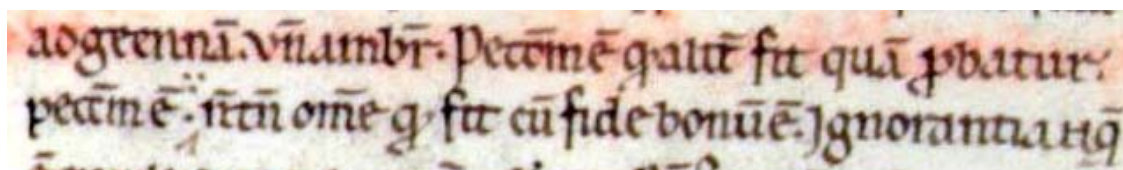 ao geennā. vn̄ ambr̄. Peccm̄ ē q̛ alit̄ fit quā ꝓbatur.
peccm̄ ē. n̄ tn̄ om̄e q̛ fit cū fide bonū ē. Ignorantia